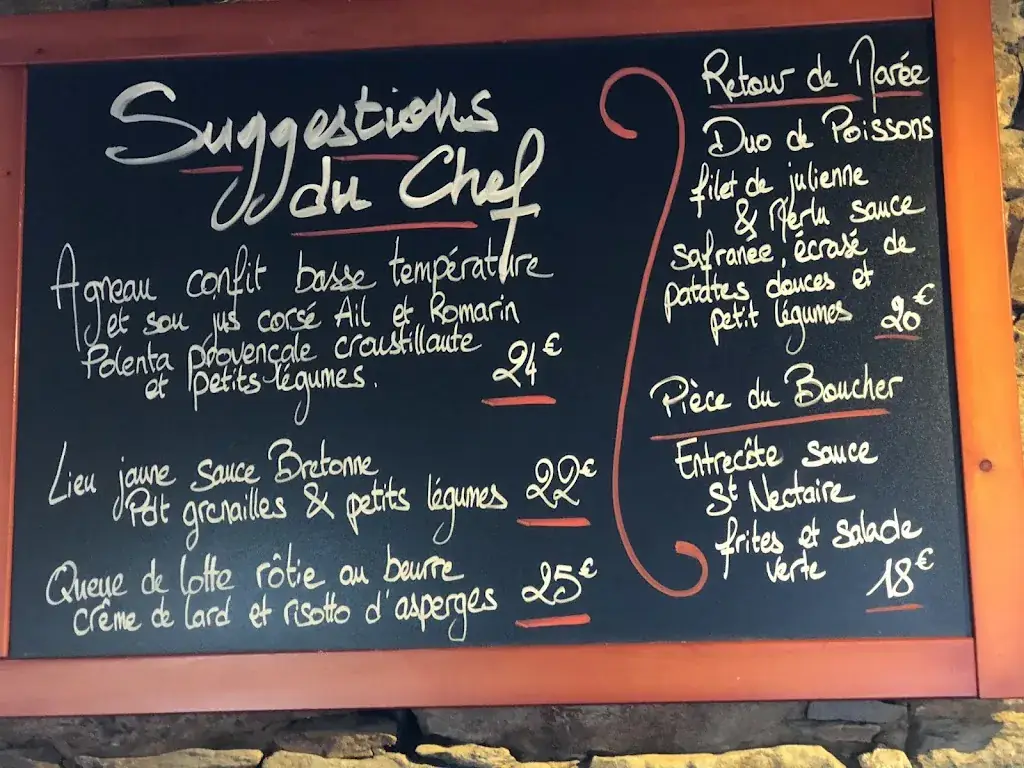 Suggestions
du Chef
Agneau confit basse température
et son jus corsé Ail et Romarin
Polenta provençale croustillante
et petits légumes.
24€
Lieu jaune sauce Bretonne
Pdt grenailles & petits légumes
22€
Queue de lotte rôtie au beurre
crême de lard et risotto d'asperges
25€
Retour de Marée
Duo de Poissons
filet de julienne
& Merlu sauce
safranée, écrasé de
patates douces et
petit légumes
20€
Pièce du Boucher
Entrecôte sauce
St Nectaire
frites et Salade
verte
18€